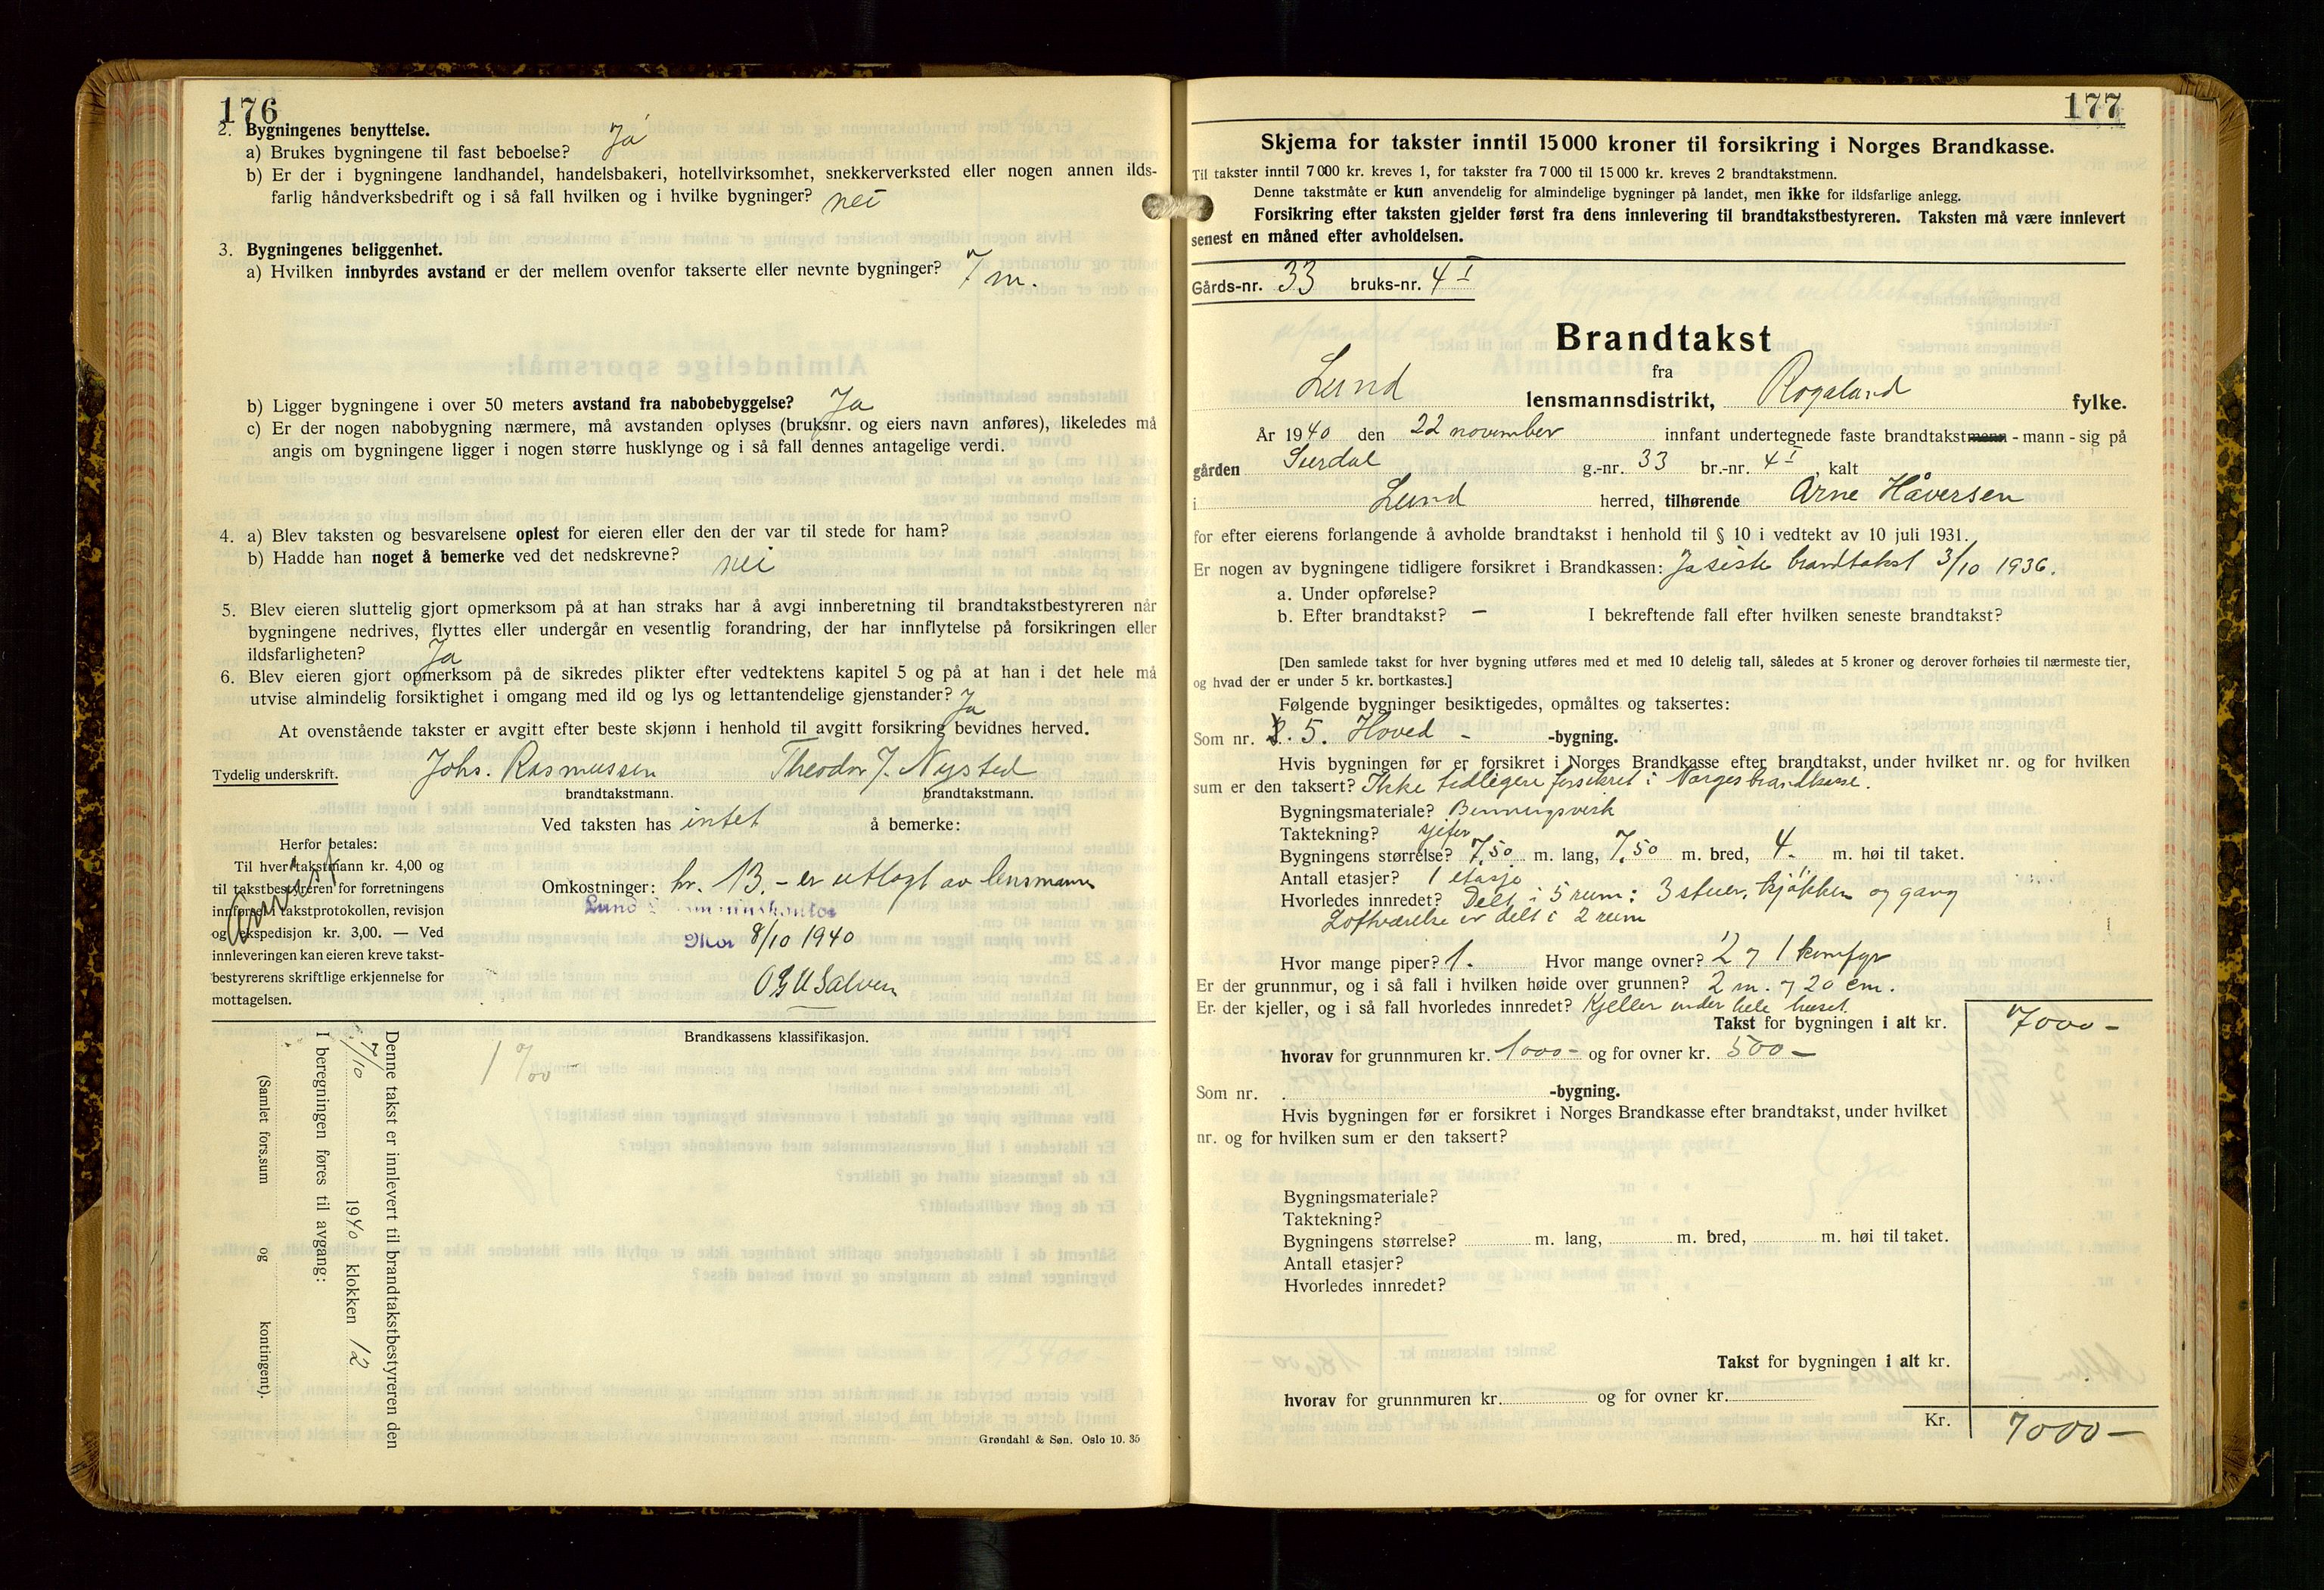 176
2. Bygningenes benyttelse.
a) Brukes bygningene til fast beboelse? Ja
b) Er der i bygningene landhandel, handelsbakeri, hotellvirksomhet, snekkerverksted eller nogen annen ilds-
farlig håndverksbedrift og i så fall hvilken og i hvilke bygninger? nei
3. Bygningenes beliggenhet.
a) Hvilken innbyrdes avstand er der mellem ovenfor takserte eller nevnte bygninger? 7 m.
b) Ligger bygningene i over 50 meters avstand fra nabobebyggelse? Ja
c) Er der nogen nabobygning nærmere, må avstanden oplyses (bruksnr. og eiers navn anføres), likeledes må
angis om bygningene ligger i nogen større husklynge og i så fall dennes antagelige verdi.
4. a) Blev taksten og besvarelsene oplest for eieren eller den der var til stede for ham?
b) Hadde han noget å bemerke ved det nedskrevne? nei
5. Blev eieren sluttelig gjort opmerksom på at han straks har å avgi innberetning til brandtakstbestyreren når
bygningene nedrives, flyttes eller undergår en vesentlig forandring, der har innflytelse på forsikringen eller
ildsfarligheten? Ja
6. Blev eieren gjort opmerksom på de sikredes plikter efter vedtektens kapitel 5 og på at han i det hele må
utvise almindelig forsiktighet i omgang med ild og lys og lettantendelige gjenstander? Ja
At ovenstående takster er avgitt efter beste skjønn i henhold til avgitt forsikring bevidnes herved.
Tydelig underskrift. Johs. Rasmussen Theodor J. Nysted
brandtakstmann. brandtakstmann.
Ved taksten has intet å bemerke:
Herfor betales:
Til hver takstmann kr. 4,00 og
til takstbestyreren for forretningens
innførsel i takstprotokollen, revisjon
og ekspedisjon kr. 3,00. — Ved
innleveringen kan eieren kreve takst-
bestyrerens skriftlige erkjennelse for
mottagelsen.
Omkostninger: kr. 13.- er utlagt av lensmann
Lund
Moi 8/10 1940
Brandkassens klassifikasjon.
Denne takst er innlevert til brandtakstbestyreren den
7/10 1940 klokken 12
I beregningen føres til avgang:
(Samlet fors.sum og kontingent).
Grøndahl & Søn. Oslo 10. 35
177
Skjema for takster inntil 15 000 kroner til forsikring i Norges Brandkasse.
Til takster inntil 7 000 kr. kreves 1, for takster fra 7 000 til 15 000 kr. kreves 2 brandtakstmenn.
Denne takstmåte er kun anvendelig for almindelige bygninger på landet, men ikke for ildsfarlige anlegg.
Forsikring efter taksten gjelder først fra dens innlevering til brandtakstbestyreren. Taksten må være innlevert
senest en måned efter avholdelsen.
Gårds-nr. 33 bruks-nr. 4 I
Brandtakst
fra
Lund lensmannsdistrikt, Rogaland fylke.
År 1940 den 22 november innfant undertegnede faste brandtakstmenn - mann - sig på
gården Surdal g.-nr. 33 br.-nr. 4 I, kalt
i Lund herred, tilhørende Arne Håversen
for efter eierens forlangende å avholde brandtakst i henhold til § 10 i vedtekt av 10 juli 1931.
Er nogen av bygningene tidligere forsikret i Brandkassen: Ja siste brandtakst 3/10 1936.
a. Under opførelse?
b. Efter brandtakst? — I bekreftende fall efter hvilken seneste brandtakst?
[Den samlede takst for hver bygning utføres med et med 10 delelig tall, således at 5 kroner og derover forhøies til nærmeste tier,
og hvad der er under 5 kr. bortkastes.]
Følgende bygninger besiktigedes, opmåltes og taksertes:
Som nr. 5. Hoved - -bygning.
Hvis bygningen før er forsikret i Norges Brandkasse efter brandtakst, under hvilket nr. og for hvilken
sum er den taksert? Ikke tidligere forsikret i Norges brandkasse.
Bygningsmateriale?
Taktekning?
Bygningens størrelse? 7,50 m. lang, 7,50 m. bred, 4. m. høi til taket.
Antall etasjer? 1 etasje
Hvorledes innredet? Delt i 5 rum: 3 stuer, kjøkken og gang
Loftværelse er delt i 2 rum
Hvor mange piper? 1. Hvor mange ovner? 2 og 1 komfyr
Er der grunnmur, og i så fall i hvilken høide over grunnen? 2 m. og 20 cm.
Er der kjeller, og i så fall hvorledes innredet? Kjeller under hele huset.
Takst for bygningen i alt kr. 7000-
hvorav for grunnmuren kr. 1000- og for ovner kr. 500-
Som nr. . -bygning.
Hvis bygningen før er forsikret i Norges Brandkasse efter brandtakst, under hvilket
nr. og for hvilken sum er den taksert?
Bygningsmateriale?
Taktekning?
Bygningens størrelse? m. lang, m. bred, m. høi til taket.
Antall etasjer?
Hvorledes innredet?
Takst for bygningen i alt kr.
hvorav for grunnmuren kr. og for ovner kr.
Kr. 7000-